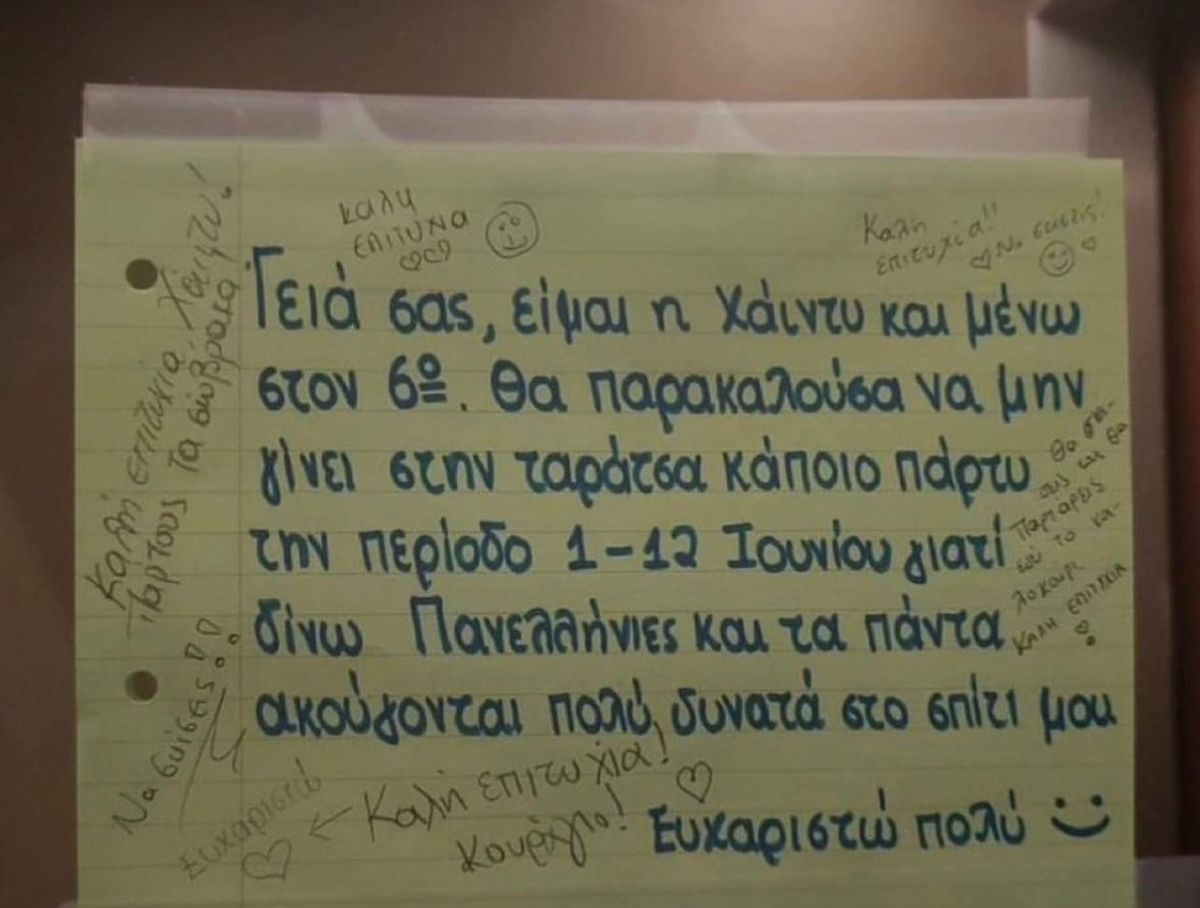 Γειά σας, είμαι η Χάιντυ και μένω
στον 6º. Θα παρακαλούσα να μην
γίνει στην ταράτσα κάποιο πάρτυ
την περίοδο 1-12 Ιουνίου γιατί
δίνω Πανελλήνιες και τα πάντα
ακούγονται πολύ δυνατά στο σπίτι μου
Ευχαριστώ πολύ
καλη
επιτυχια
Καλή
επιτυχία!!
Να σκίσεις!
Καλή επιτυχία Χάιντυ!
Παρτους τα σώβρακα!
Να σκίσεις!!
Ευχαριστώ
Καλή επιτυχία!
Κουράγιο!
Θα σκί-
σεις και θα
παρτάρεις
εσύ το κα-
λοκαίρι
ΚΑΛΗ ΕΠΙΤΥΧΙΑ